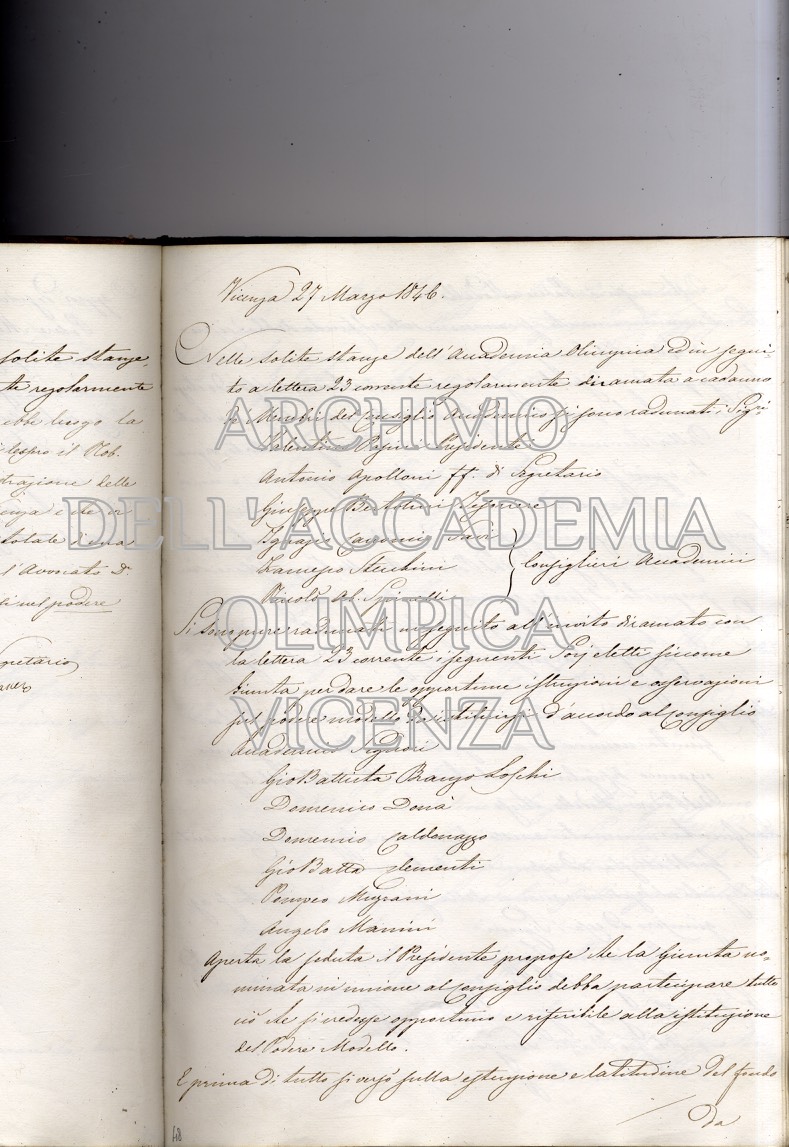 solite stanze,
te regolarmente
ebbe luogo la
il Nob.
delle
totale d'una
l'Avvocato Dr.
nel podere
Vicenza 27 Marzo 1846.
Nelle solite stanze dell'Accademia Olimpica ed in segui-
to a lettera 23 corrente regolarmente diramata a cadauno
Membri del Consiglio Accademico si sono radunati i Sigri.
ARCHIVIO
Valentino Presidente
Antonio Apolloni ff. di Segretario
DELL'ACCADEMIA
Giuseppe Bertolini
Ignazio
Consiglieri Accademici
Francesco
Nicolò
OLIMPICA
Si sono pure radunati in seguito all'invito diramato con
la lettera 23 corrente i seguenti Soci eletti siccome
Giunta per dare le opportune istruzioni e osservazioni
sul podere modello da istituirsi d'accordo al Consiglio
VICENZA
Accademico Signori
GioBattista Branzo Loschi
Domenico Donà
Domenico Caldonazzo
GioBatta Clementi
Pompeo
Angelo Manini
Aperta la seduta il Presidente propose che la Giunta no-
minata in unione al Consiglio debba partecipare tutto
ciò che si credesse opportuno e riferibile alla istituzione
del Podere Modello.
E prima di tutto si versò sulla estensione e latitudine del fondo
da